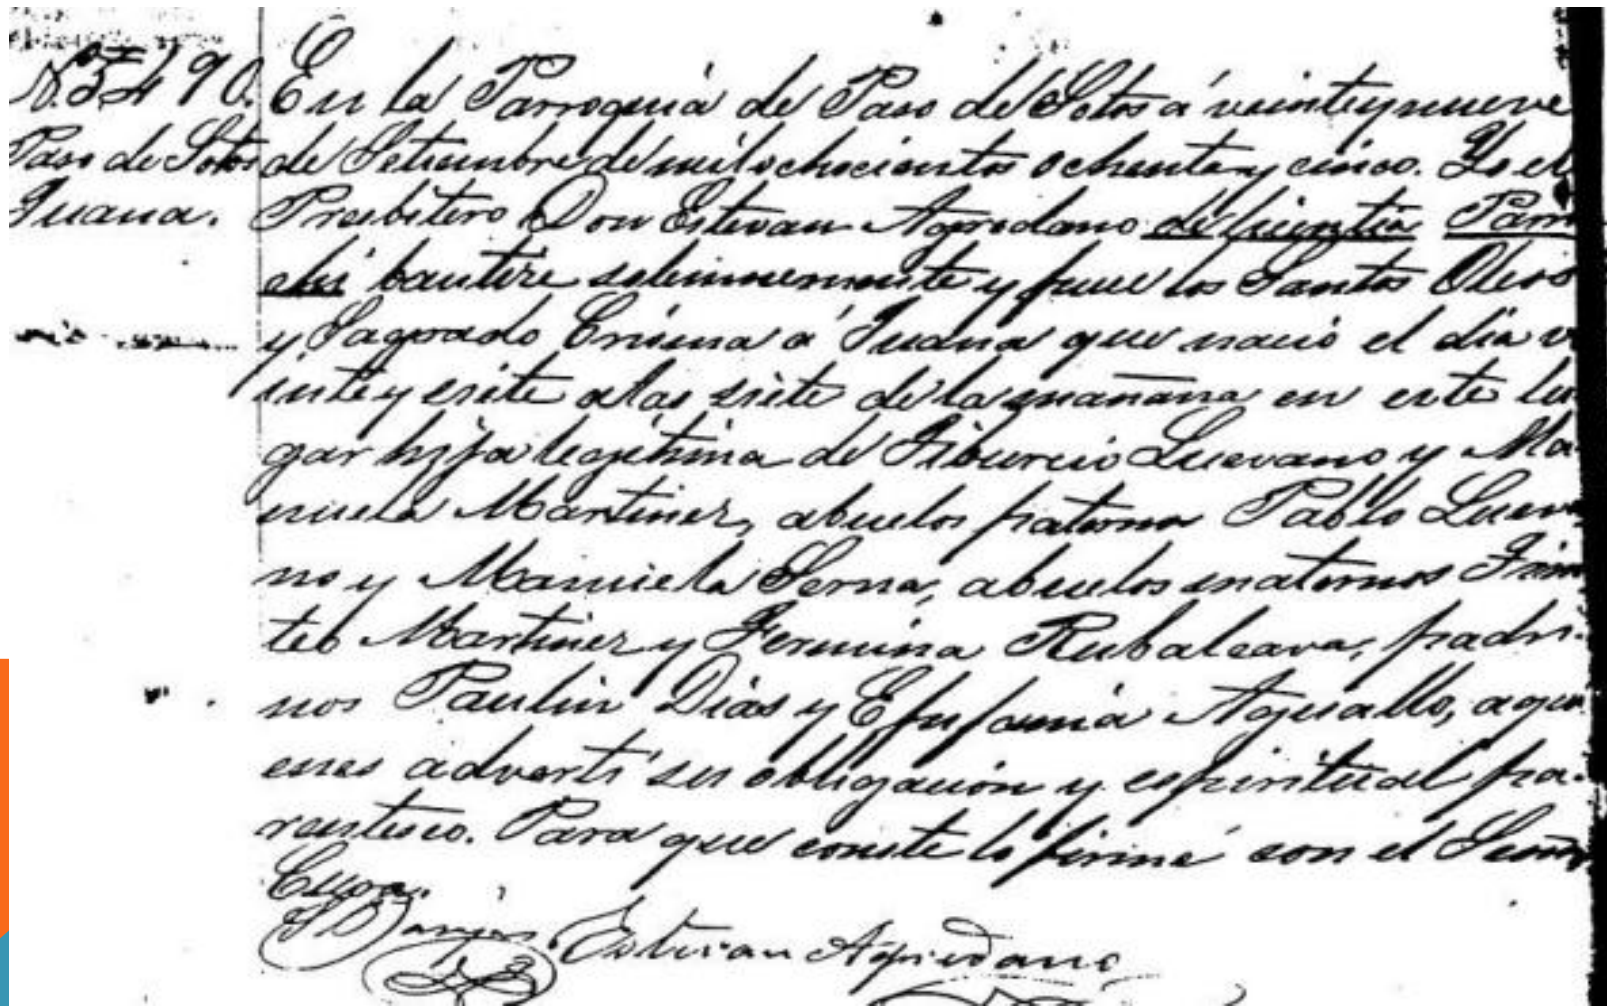 N. 5490.
Paso de Sotos
Juana.
En la Parroquia de Paso de Sotos á veinteynueve
de Setiembre de mil ochocientos ochenta y cinco. Yo el
Presbítero Don Estevan Agredano de licentia Parro
chi bautizé solemnemente y puse los Santos Oleos
y Sagrado Crisma á Juana que nació el dia ve
inte y siete a las siete de la mañana en este lu
gar hija legítima de Tiburcio Luevano y Ma-
nuela Martinez, abuelos paternos Pablo Lueva
no y Manuela Serna, abuelos maternos
teo Martinez y Fermina Rubalcava, padri-
nos Paulin Dias y Epifania Aguallo, a qui-
enes advertí su obligación y espiritual pa-
rentesco. Para que conste lo firmé con el Señor
Cura.
Estevan Agredano